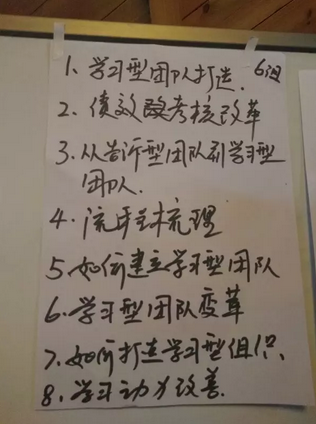 1、学习型团队打造. 6组
2、绩效考核改革
3、从告诉型团队到学习型
团队.
4、流程梳理
5、如何建立学习型团队
6、学习型团队变革
7、如何打造学习型组织、
8、学习动力改善.